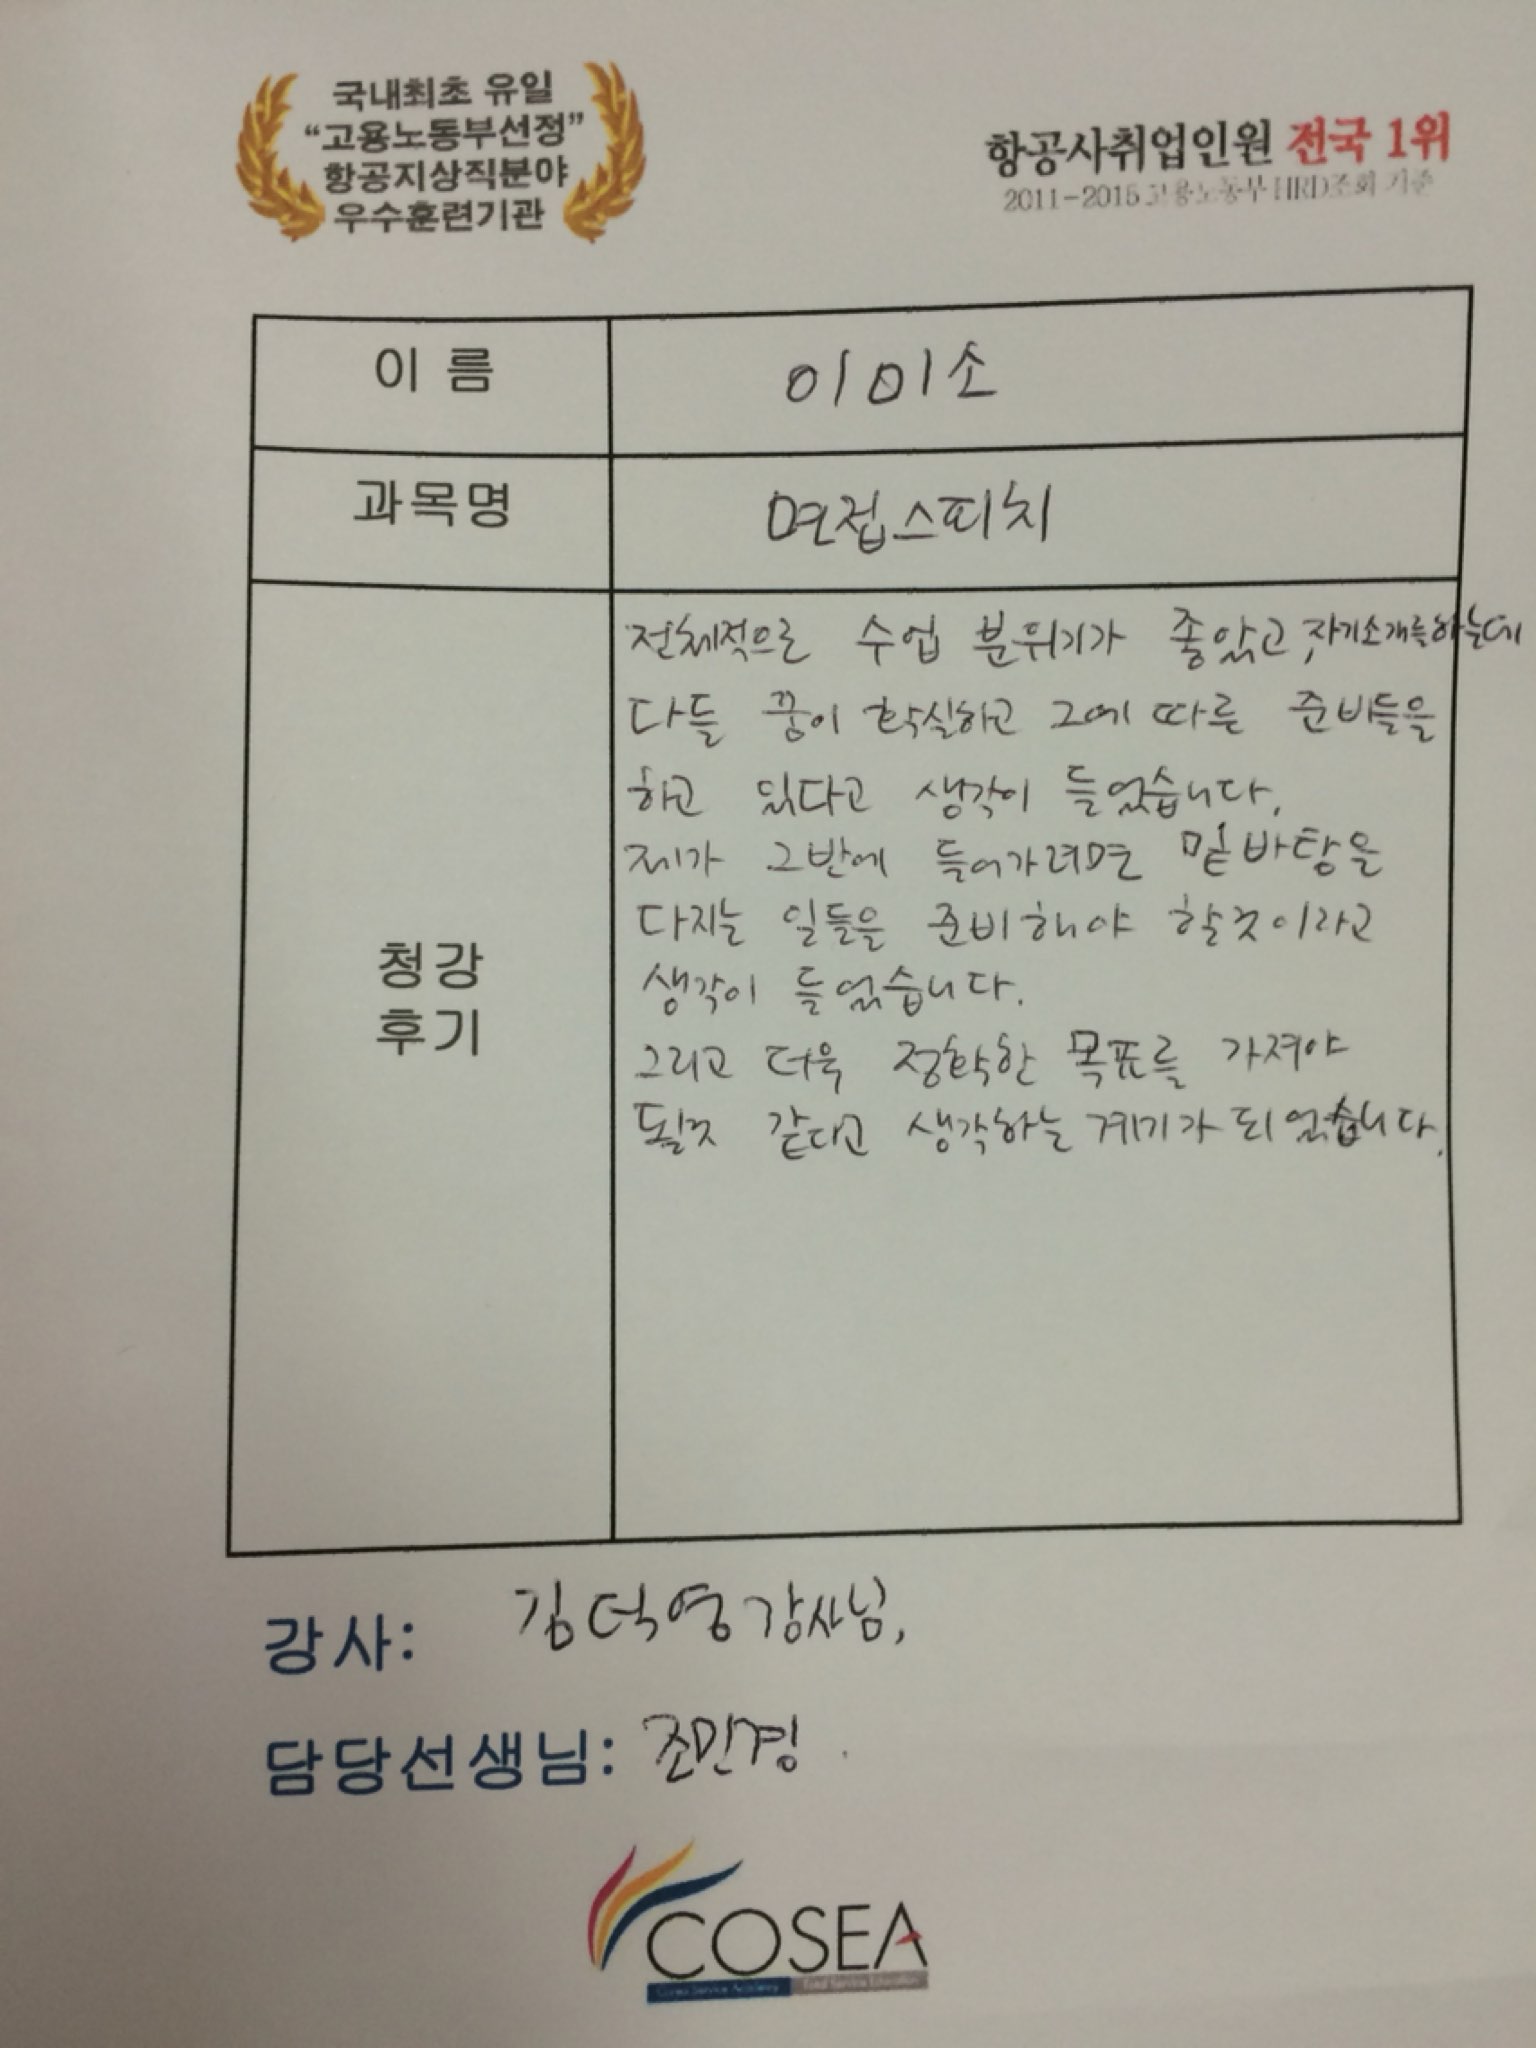 국내최초 유일
“고용노동부선정”
항공지상직분야
우수훈련기관
항공사취업인원 전국 1위
2011-2015 고용노동부 HRD조회 기준
이 름
이미소
과목명
면접스피치
청강
후기
전체적으로 수업 분위기가 좋았고, 자기소개를하는데
다들 꿈이 확실하고 그에 따른 준비들을
하고 있다고 생각이 들었습니다.
제가 그반에 들어가려면 밑바탕을
다지는 일들을 준비해야 할것이라고
생각이 들었습니다.
그리고 더욱 정확한 목표를 가져야
될것 같다고 생각하는 계기가 되었습니다.
강사: 김덕영강사님,
담당선생님: 조민경
COSEA
Korea Service Academy Total Service Education